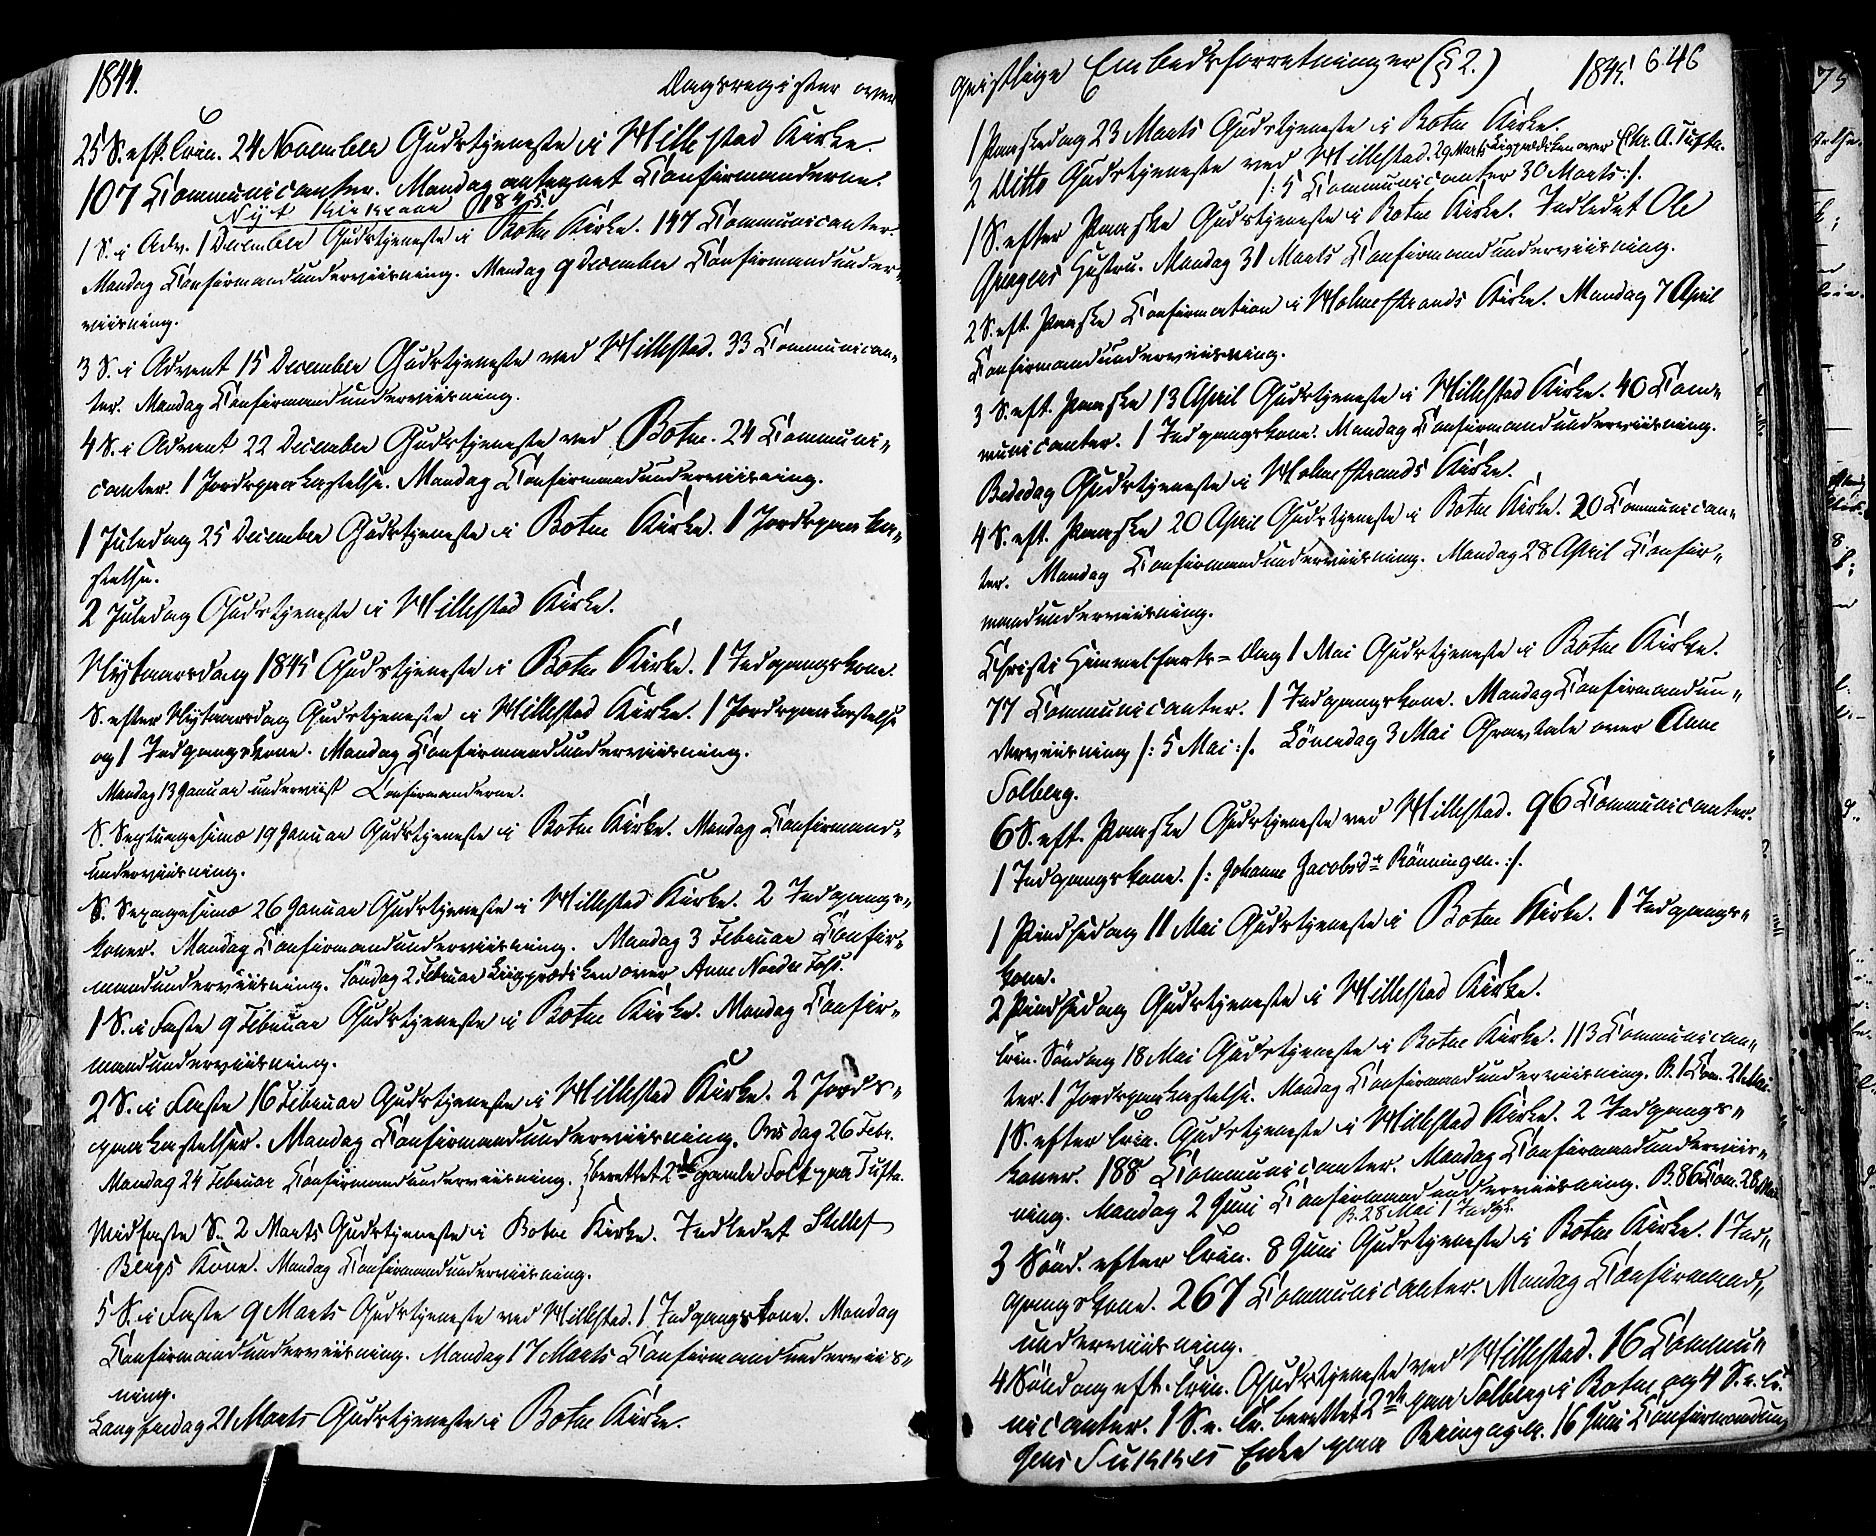 1844.
Dagsregister over
25 S. eft. Trin. 24 November Gudstjeneste i Hillestad Kirke.
107 Communicanter. Mandag antegnet Confirmanderne.
Nyt Kirkeaar 1845.
1 S. i Adv. 1 December Gudstjeneste i Botne Kirke. 147 Communicanter.
Mandag Confirmandunderviisning. Mandag 9 December Confirmandunder-
viisning.
3 S. i Advent 15 December Gudstjeneste ved Hillestad. 33 Communican-
ter. Mandag Confirmandunderviisning.
4 S. i Advent 22 December Gudstjeneste ved Botne. 24 Communi-
canter. 1 Jordspaakastelse. Mandag Confirmandunderviisning.
1 Juledag 25 December Gudstjeneste i Botne Kirke. 1 Jordspaaka-
stelse.
2 Juledag Gudstjeneste i Hillestad Kirke.
Nytaarsdag 1845 Gudstjeneste i Botne Kirke. 1 Indgangskone.
S. efter Nytaarsdag Gudstjeneste i Hillestad Kirke. 1 Jordspaakastelse
og 1 Indgangskone. Mandag Confirmandunderviisning.
Mandag 13 Januar underviist Confirmanderne.
S. Septuagesima 19 Januar Gudstjeneste i Botne Kirke. Mandag Confirmand-
underviisning.
S. Sexagesima 26 Januar Gudstjeneste i Hillestad Kirke. 2 Indgangs-
koner. Mandag Confirmandunderviisning. Mandag 3 Februar Confir-
mandunderviisning. Söndag 2 Februar Liigprædiken over Anne Nordre
1 S. i Faste 9 Februar Gudstjeneste i Botne Kirke. Mandag Confir-
mandunderviisning.
2 S. i Faste 16 Februar Gudstjeneste i Hillestad Kirke. 2 Jords-
paakastelser. Mandag Confirmandunderviisning. Onsdag 26 Febr.
Mandag 24 Februar Confirmandunderviisning. berettet 2de gamle Folk paa Tufte.
Midfaste S. 2 Marts Gudstjeneste i Botne Kirke. Indledet
Bergs Kone. Mandag Confirmandunderviisning.
5 S. i Faste 9 Marts Gudstjeneste ved Hillestad. 1 Indgangskone. Mandag
Confirmandunderviisning. Mandag 17 Marts Confirmandunderviis-
ning.
Langfredag 21 Marts Gudstjeneste i Botne Kirke.
geistlige Embedsforretninger (§ 2.) 1845. 646
1 Paaskedag 23 Marts Gudstjeneste i Botne Kirke.
2 Ditto Gudstjeneste ved Hillestad. 29 Marts Liigprædiken over Chr. A. Tufte.
/: 5 Communicanter 30 Marts :/.
1 S. efter Paaske Gudstjeneste i Botne Kirke. Indledet Ole
Gregers Hustru. Mandag 31 Marts Confirmandunderviisning.
2 S. eft. Paaske Confirmation i Holmestrands Kirke. Mandag 7 April
Confirmandunderviisning.
3 S. eft. Paaske 13 April Gudstjeneste i Hillestad Kirke. 40 Com-
municanter. 1 Indgangskone. Mandag Confirmandunderviisning.
Bededag Gudstjeneste i Holmestrands Kirke.
4 S. eft. Paaske 20 April Gudstjeneste i Botne Kirke. 20 Communican-
ter. Mandag Confirmandunderviisning. Mandag 28 April Confir-
mandunderviisning.
Christi Himmelfarts-Dag 1 Mai Gudstjeneste i Botne Kirke.
77 Communicanter. 1 Indgangskone. Mandag Confirmandun-
derviisning /: 5 Mai :/. Löverdag 3 Mai Gravtale over Anne
Solberg.
6 S. eft. Paaske Gudstjeneste ved Hillestad. 96 Communicanter.
1 Indgangskone. /: Johanne Jacobsdr Rönningen. :/.
1 Pindsedag 11 Mai Gudstjeneste i Botne Kirke. 1 Indgangs-
kone.
2 Pindsedag Gudstjeneste i Hillestad Kirke.
Trin. Söndag 18 Mai Gudstjeneste i Botne Kirke. 113 Communican-
ter. 1 Jordspaakastelse. Mandag Confirmandunderviisning. B. 1 Com. 21 Mai.
1 S. efter Trin. Gudstjeneste i Hillestad Kirke. 2 Indgangs-
koner. 188 Communicanter. Mandag Confirmandunderviis-
ning. Mandag 2 Juni Confirmandunderviisning. B. 86 Com. 28 Mai
B. 28 Mai 1 Indgk.
3 Sönd. efter Trin. 8 Juni Gudstjeneste i Botne Kirke. 1 Ind-
gangskone. 267 Communicanter. Mandag Confirmand-
underviisning.
4 Söndag eft. Trin. Gudstjeneste ved Hillestad. 16 Commu-
nicanter. 1 S. e. Tr. berettet 2de paa Solberg i Botne og 4 S. e. Tr.
Enke paa 16 Juni Confirmandun